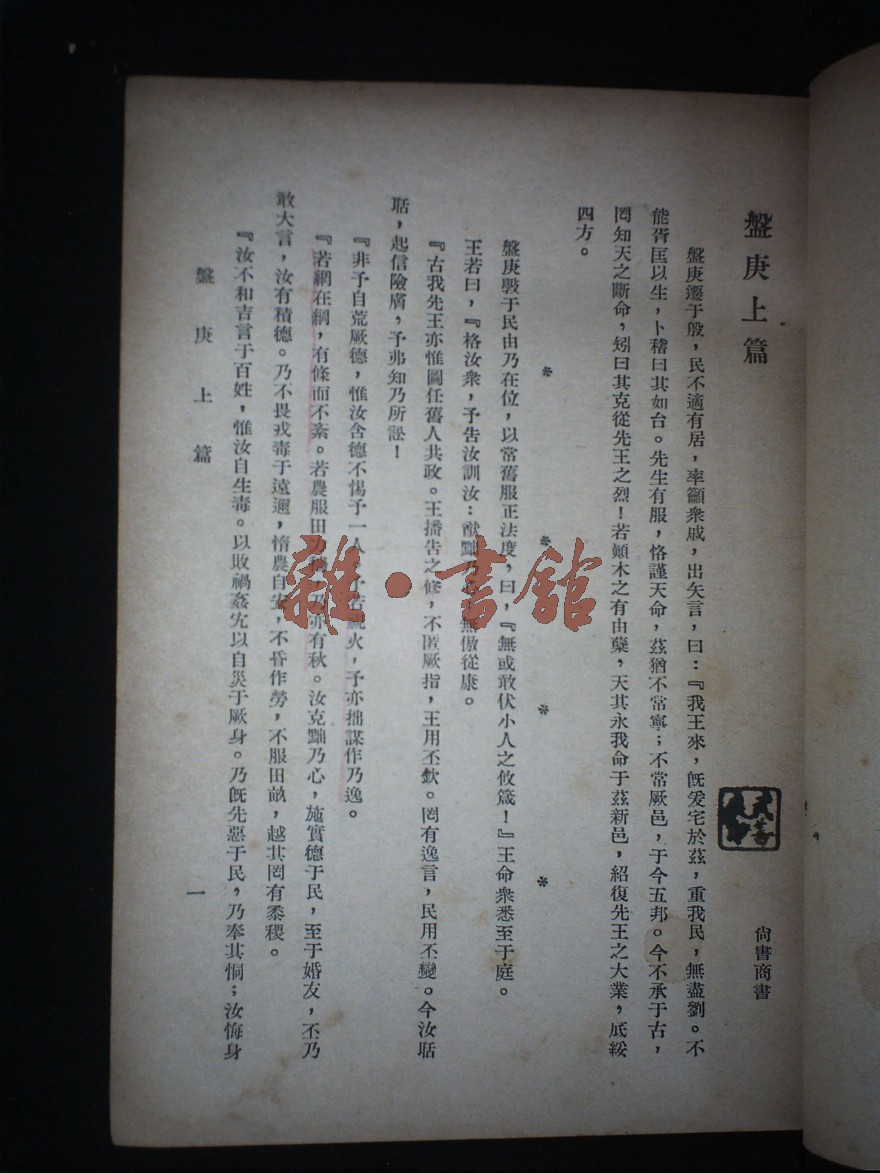 盤庚上篇
尙書商書
盤庚遷于殷，民不適有居，率籲衆戚，出矢言，曰：『我王來，旣爰宅於茲，重我民，無盡劉。不
能胥匡以生，卜稽曰其如台。先生有服，恪謹天命，茲猶不常寧；不常厥邑，于今五邦。今不承于古，
罔知天之斷命，矧曰其克從先王之烈！若顚木之有由蘖，天其永我命于茲新邑，紹復先王之大業，厎綏
四方。
＊　＊　＊　＊
盤庚斆于民由乃在位，以常舊服正法度，曰，『無或敢伏小人之攸箴！』王命衆悉至于庭。
王若曰，『格汝衆，予告汝訓汝：猷黜乃 無傲從康。
『古我先王亦惟圖任舊人共政。王播告之修，不匿厥指，王用丕欽。罔有逸言，民用丕變。今汝聒
聒，起信險膚，予弗知乃所訟！
『非予自荒厥德，惟汝含德不惕予一人。予若觀火，予亦拙謀作乃逸。
『若網在綱，有條而不紊。若農服田力 乃亦有秋。汝克黜乃心，施實德于民，至于婚友，丕乃
敢大言，汝有積德。乃不畏戎毒于遠邇，惰農自安，不昏作勞，不服田畝，越其罔有黍稷。
『汝不和吉言于百姓，惟汝自生毒。以敗禍姦宄以自災于厥身。乃旣先惡于民，乃奉其恫；汝悔身
盤庚上篇
一
雜·書館